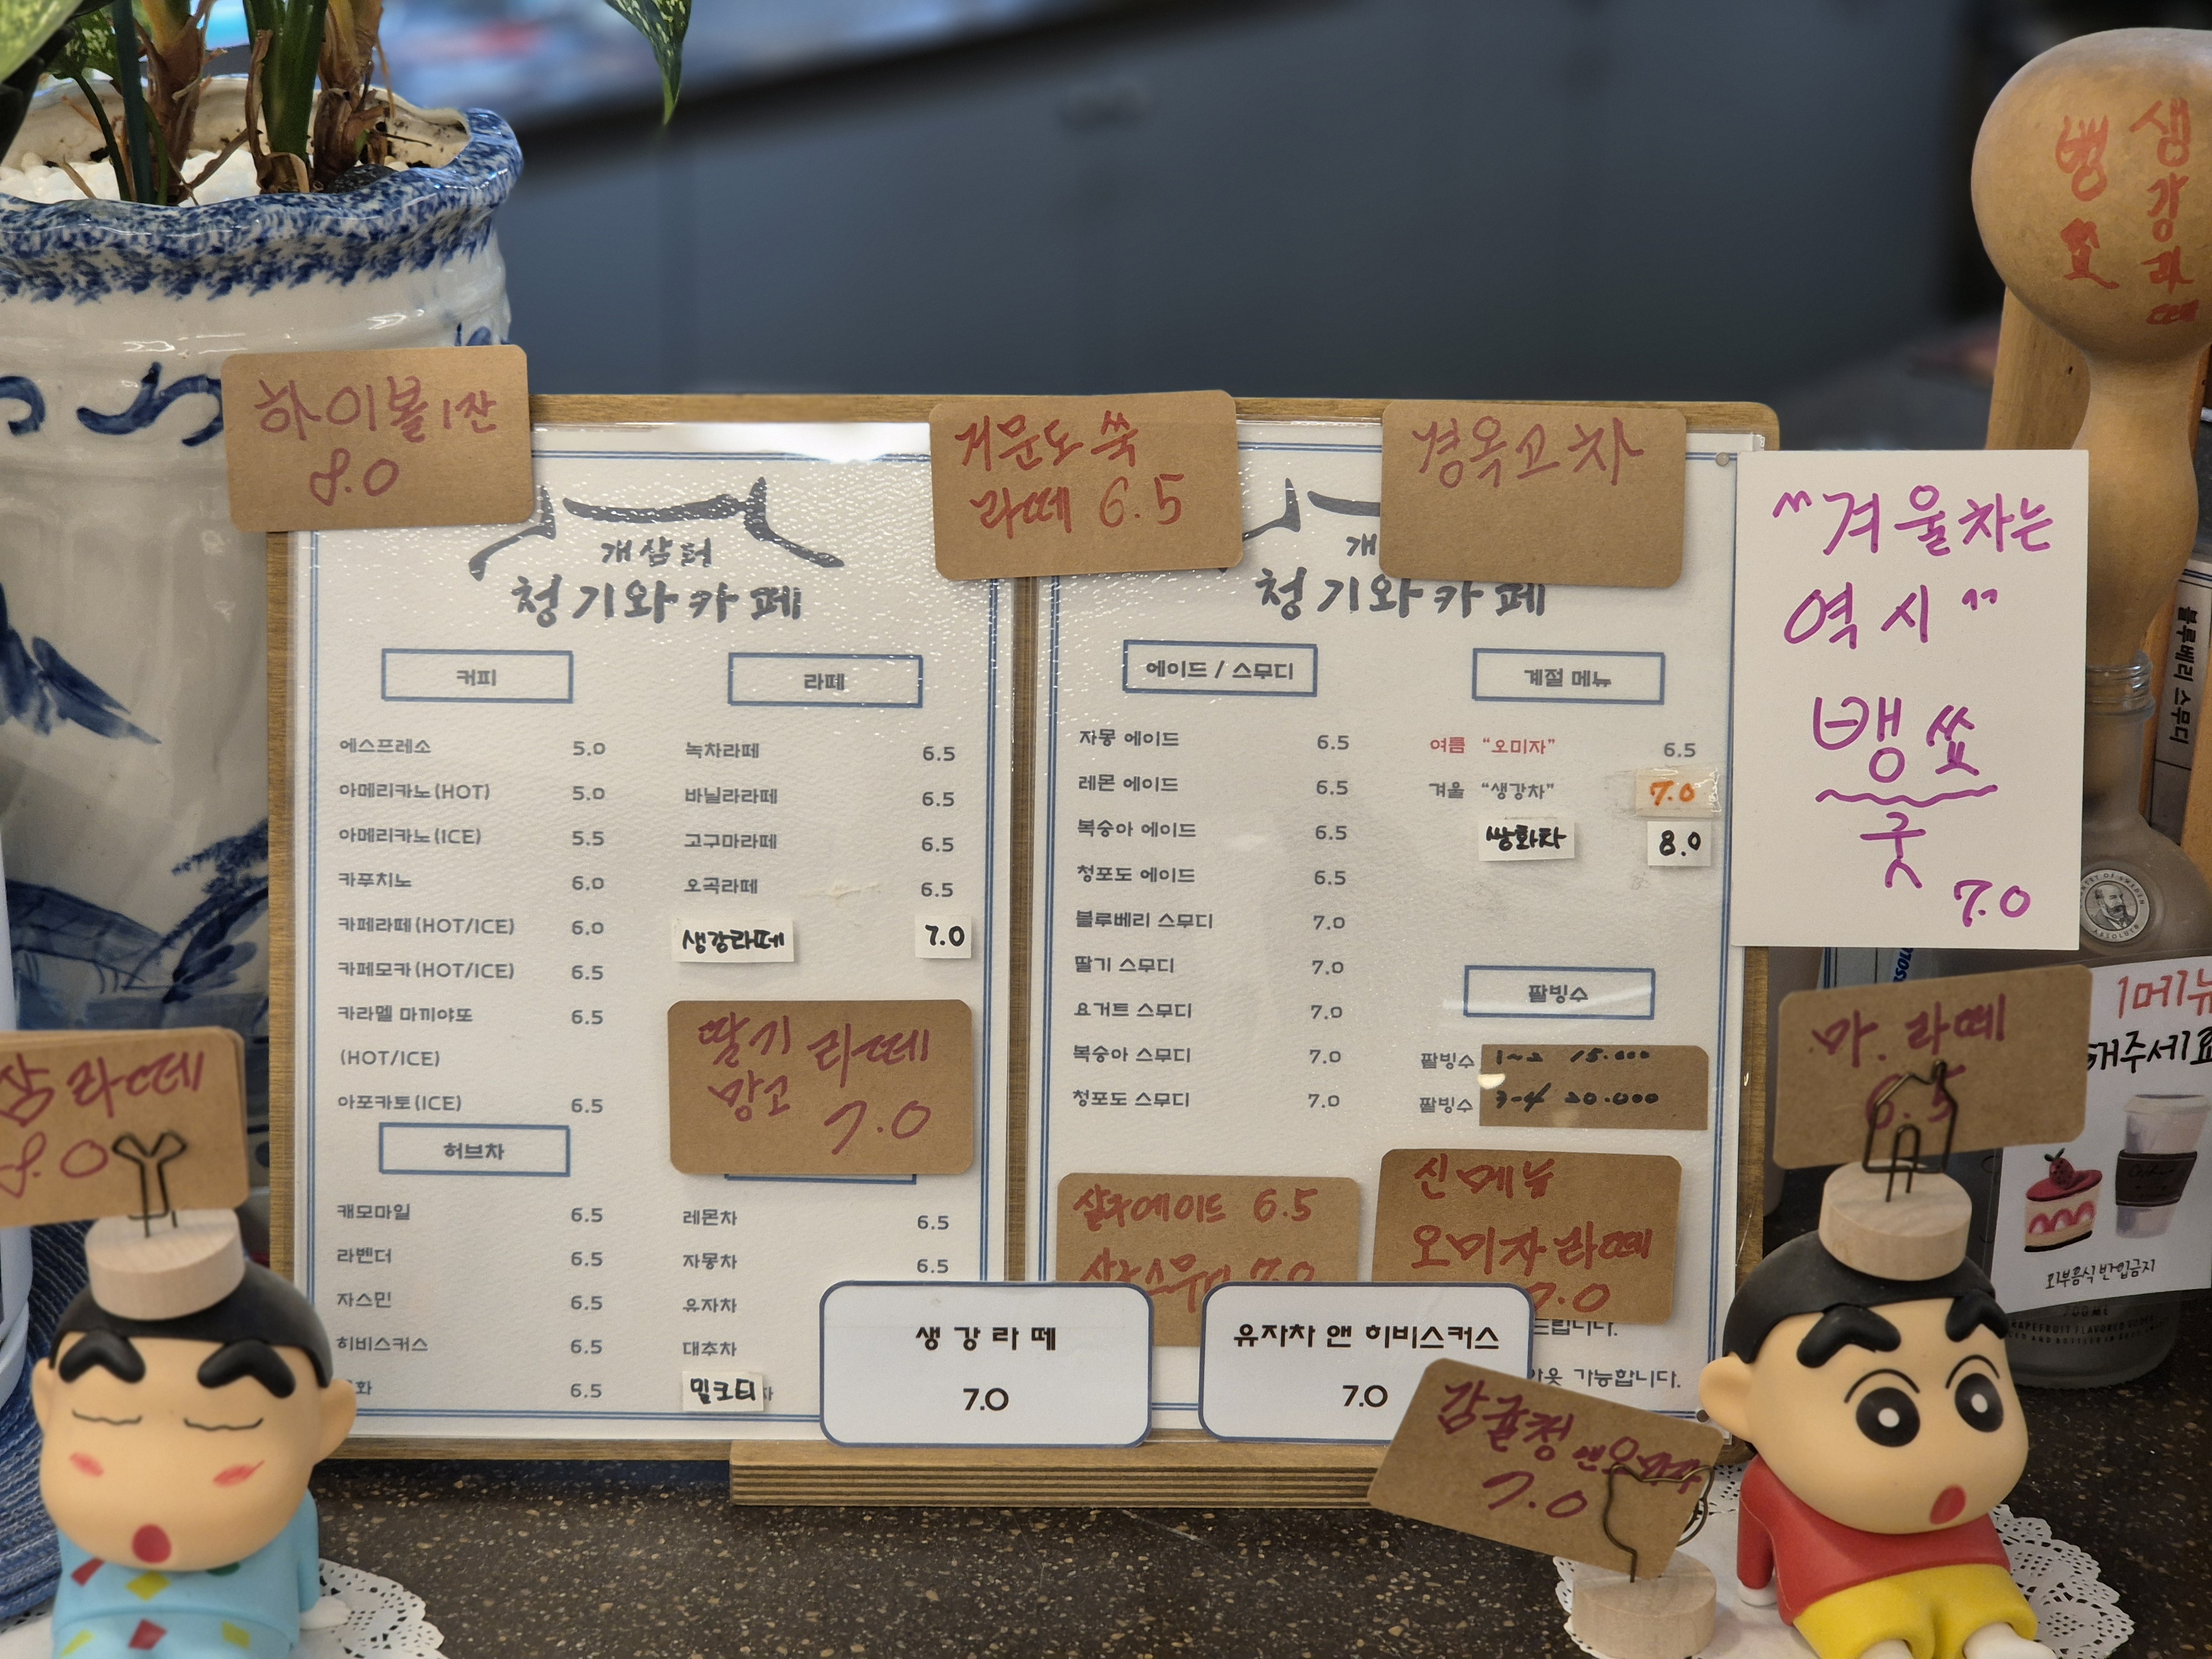 하이볼 1잔
8.0
거문도 쑥
라떼 6.5
경옥고차
"겨울차는
역시"
뱅쇼
굿
7.0
생강라떼
뱅쇼
블루베리 스무디
개삼터
청기와카페
커피
에스프레소 5.0
아메리카노(HOT) 5.0
아메리카노(ICE) 5.5
카푸치노 6.0
카페라떼(HOT/ICE) 6.0
카페모카(HOT/ICE) 6.5
카라멜 마끼야또 6.5
(HOT/ICE)
아포카토(ICE) 6.5
허브차
캐모마일 6.5
라벤더 6.5
자스민 6.5
히비스커스 6.5
화 6.5
라떼
녹차라떼 6.5
바닐라라떼 6.5
고구마라떼 6.5
오곡라떼 6.5
생강라떼 7.0
딸기 라떼
망고 7.0
레몬차 6.5
자몽차 6.5
유자차
대추차
밀크티
개
청기와카페
에이드 / 스무디
자몽 에이드 6.5
레몬 에이드 6.5
복숭아 에이드 6.5
청포도 에이드 6.5
블루베리 스무디 7.0
딸기 스무디 7.0
요거트 스무디 7.0
복숭아 스무디 7.0
청포도 스무디 7.0
계절 메뉴
여름 "오미자" 6.5
겨울 "생강차" 7.0
쌍화차 8.0
팥빙수
팥빙수 1~2 15.000
팥빙수 3-4 20.000
에이드 6.5
7.0
신메뉴
오미자라떼
7.0
드립니다.
가능합니다.
생강라떼
7.0
유자차 앤 히비스커스
7.0
감귤청 앤
7.0
삼라떼
8.0
마.라떼
6.5
1메뉴
해주세요
외부음식 반입금지